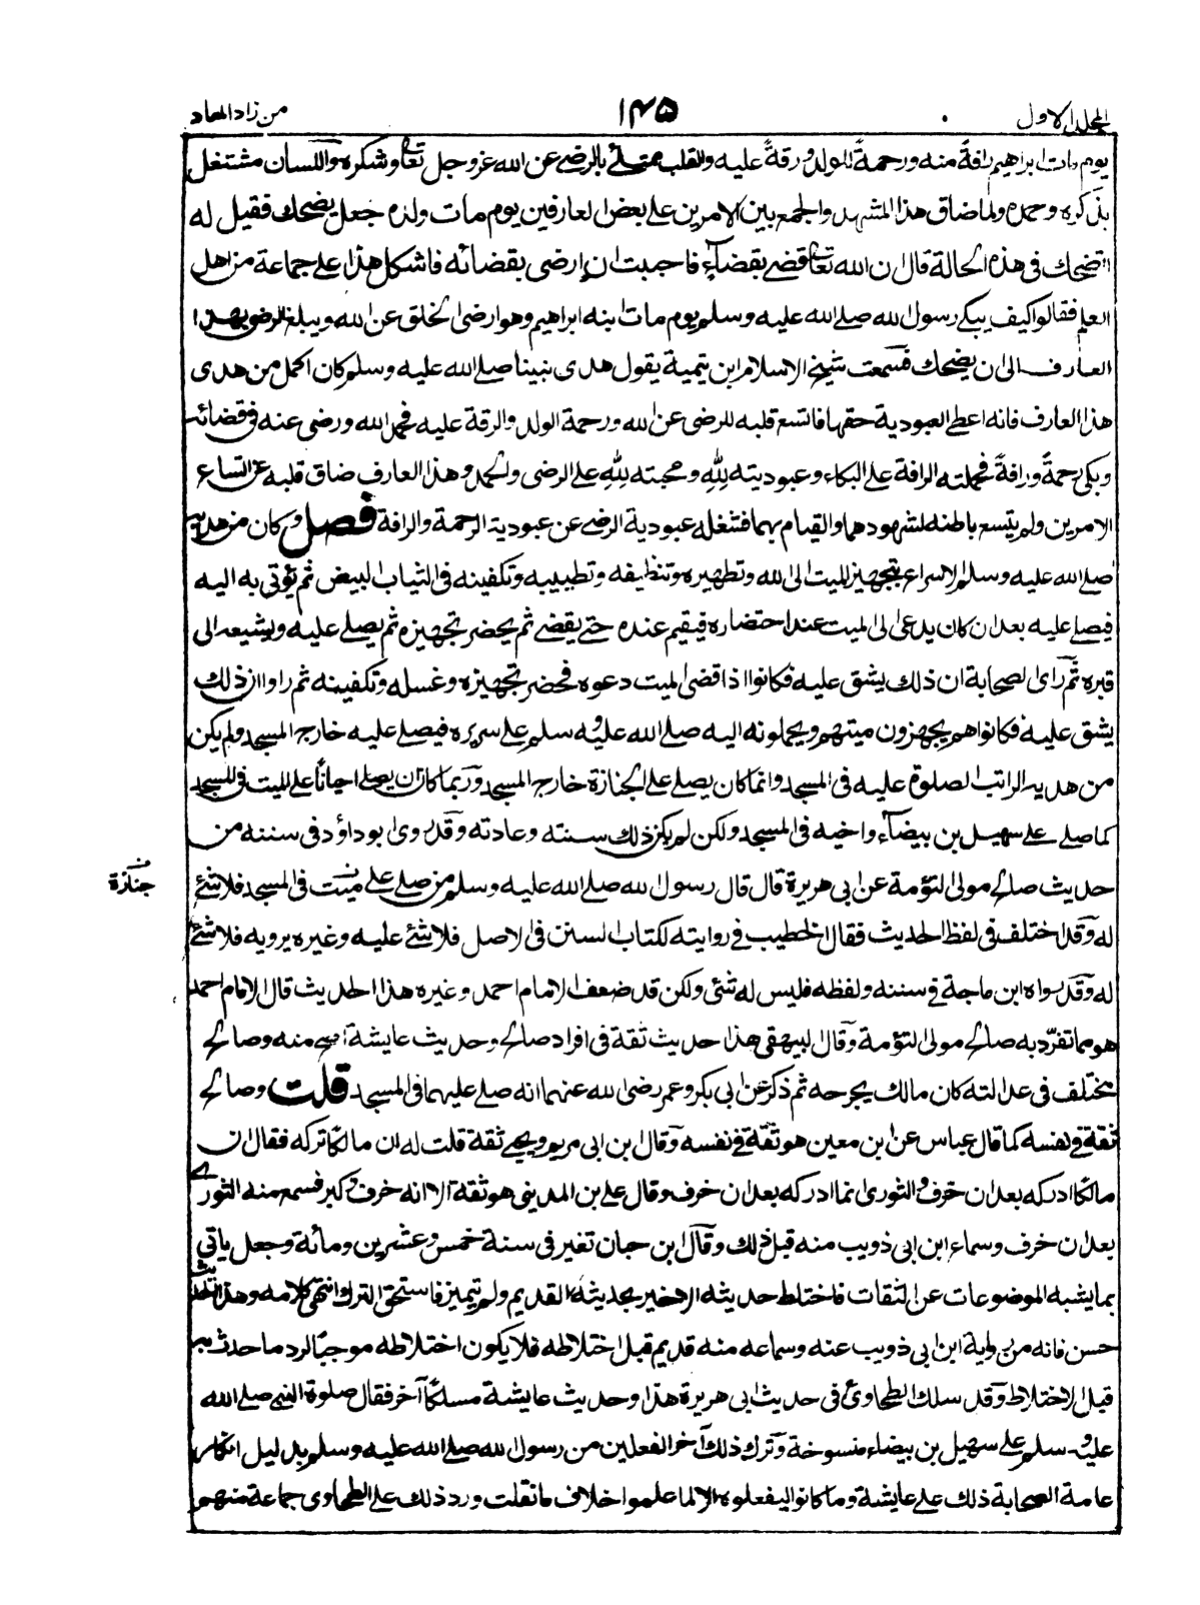 المجلد الاول
١٤٥
من زاد المعاد
يوم مات ابراهيم رافة منه ورحمة للولد ورقة عليه والقلب ممتلئ بالرضى عن الله عز وجل تعالى وشكره واللسان مشتغل
بذكره وحمده ولما ضاق هذا المشهد والجمع بين الامرين على بعض العارفين يوم مات ولده جعل يضحك فقيل له
اتضحك فى هذه الحالة قال ان الله تعالى قضى بقضاء فاحببت ان ارضى بقضائه فاشكل هذا على جماعة من اهل
العلم فقالوا كيف يبكى رسول الله صلى الله عليه وسلم يوم مات ابنه ابراهيم وهو ارضى الخلق عن الله ويبلغ الرضى بهذا
العارف الى ان يضحك فسمعت شيخ الاسلام ابن تيمية يقول هدى نبينا صلى الله عليه وسلم كان اكمل من هدى
هذا العارف فانه اعطى العبودية حقها فاتسع قلبه للرضى عن الله ورحمة الولد والرقة عليه فحمد الله ورضى عنه فى قضائه
وبكى رحمةً ورافةً فحملته الرافة على البكاء وعبوديته لله ومحبته لله على الرضى والحمد وهذا العارف ضاق قلبه عن اتساع
الامرين ولم يتسع باطنه لشهودهما والقيام بهما فشغله عبودية الرضى عن عبودية الرحمة والرافة فصل وكان من هديه
صلى الله عليه وسلم الاسراع بتجهيز الميت الى الله وتطهيره وتنظيفه وتطييبه وتكفينه فى الثياب البيض ثم يؤتى به اليه
فيصلى عليه بعد ان كان يدعى الى الميت عند احتضاره فيقيم عنده حتى يقضى ثم يحضر تجهيزه ثم يصلى عليه ويشيعه الى
قبره ثم راى الصحابة ان ذلك يشق عليه فكانوا اذا قضى الميت دعوه فحضر تجهيزه وغسله وتكفينه ثم راوا ان ذلك
يشق عليه فكانوا هم يجهزون ميتهم ويحملونه اليه صلى الله عليه وسلم على سريره فيصلى عليه خارج المسجد ولم يكن
من هديه الراتب الصلوة عليه فى المسجد وانما كان يصلى على الجنازة خارج المسجد وربما كان يصلى احيانًا على الميت فى المسجد
كما صلى على سهيل بن بيضاء واخيه فى المسجد ولكن لم يكن ذلك سنته وعادته وقد روى ابو داؤد فى سننه من
حديث صالح مولى التؤمة عن ابى هريرة قال قال رسول الله صلى الله عليه وسلم من صلى على ميت فى المسجد فلا شئ
جنازة
له وقد اختلف فى لفظ الحديث فقال الخطيب فى روايته لكتاب السنن فى الاصل فلا شئ عليه وغيره يرويه فلا شئ
له وقد رواه ابن ماجة فى سننه ولفظه فليس له شئ ولكن قد ضعف الامام احمد وغيره هذا الحديث قال الامام احمد
هو مما تفرّد به صالح مولى التؤمة وقال البيهقى هذا حديث ثقة فى افراد صالح وحديث عايشة اصح منه وصالح
مختلف فى عدالته كان مالك يجرحه ثم ذكر عن ابى بكر وعمر رضى الله عنهما انه صلى عليهما فى المسجد قلت وصالح
ثقة فى نفسه كما قال عباس عن ابن معين هو ثقة فى نفسه وقال ابن ابى مريم ويحيى ثقة قلت له ان مالكًا تركه فقال ان
مالكًا ادركه بعد ان خرف والثورى انما ادركه بعد ان خرف وقال على بن المدينى هو ثقة الا انه خرف وكبر فسمع منه الثورى
بعد ان خرف وسماع ابن ابى ذويب منه قبل ذلك وقال ابن حبان تغير فى سنة خمس وعشرين ومائة وجعل ياتى
بما يشبه الموضوعات عن الثقات فاختلط حديثه الاخير بحديثه القديم ولم يتميز فاستحق الترك انتهى كلامه وهذا الحديث
حسن فانه من رواية ابن ابى ذويب عنه وسماعه منه قديم قبل اختلاطه فلا يكون اختلاطه موجبًا لرد ما حدث به
قبل الاختلاط وقد سلك الطحاوى فى حديث ابى هريرة هذا وحديث عايشة مسلكًا آخر فقال صلوة النبى صلى الله
عليه وسلم على سهيل بن بيضاء منسوخة وترك ذلك آخر الفعلين من رسول الله صلى الله عليه وسلم بدليل انكار
عامة الصحابة ذلك على عايشة وما كانوا ليفعلوه الا لما علموا خلاف ما نقلت ورد ذلك على الطحاوى جماعة منهم